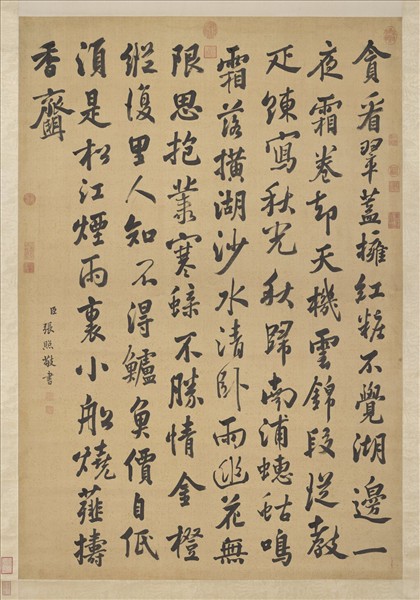 貪看翠蓋擁紅粧不覺湖邊一
夜霜卷却天機雲錦段從教
疋練寫秋光秋歸南浦蟪蛄鳴
霜落橫湖沙水清臥雨幽花無
限思抱叢寒蝶不勝情金橙
縱復里人知不得鱸魚價自低
須是松江煙雨裏小船燒薤擣
香虀
臣張照敬書